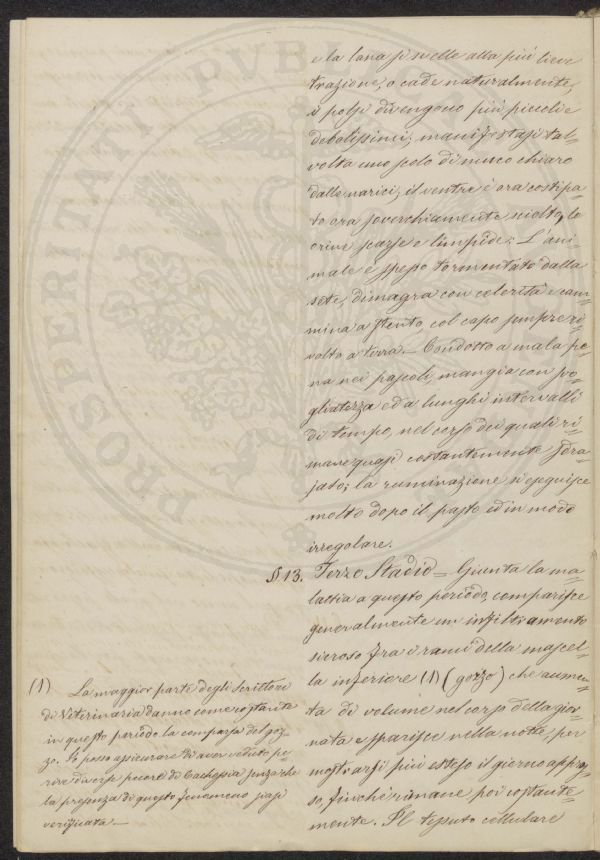 e la lana si svelle alla più lieve
trazione, o cade naturalmente,
i polsi divengono più piccoli e
debolissimi; manifestasi tal=
volta uno scolo di muco chiaro
dalle narici; il ventre è ora costipa=
to ora soverchiamente sciolto, le
orine scarse e limpide: L'ani=
male è spesso tormentato dalla
sete, dimagra con celerità e cam=
mina a stento, col capo sempre ri=
volto a terra. — Condotto a mala pe=
na nei pascoli, mangia con svo=
gliatezza ed a lunghi intervalli
di tempo, nel corso dei quali ri=
mane quasi costantemente sdra=
jato; la ruminazione si eseguisce
molto dopo il pasto ed in modo
irregolare.
§ 13. Terzo Stadio = Giunta la ma=
lattia a questo periodo, comparisce
generalmente un infiltramento
sieroso fra i rami della mascel=
la inferiore (1) (gozzo) che aumen=
ta di volume nel corso della gior=
nata e sparisce nella notte, per
mostrarsi più esteso il giorno appres=
so, finchè rimane poi costante=
mente. Il tessuto cellulare
(1) La maggior parte degli Scrittori
di Veterinaria danno come costante
in questo periodo la comparsa del goz=
zo. Io posso assicurare di aver veduto pe=
rire diverse pecore di Cachessia senza che
la presenza di questo fenomeno siasi
verificata. —
PROSPERITATI PVBL